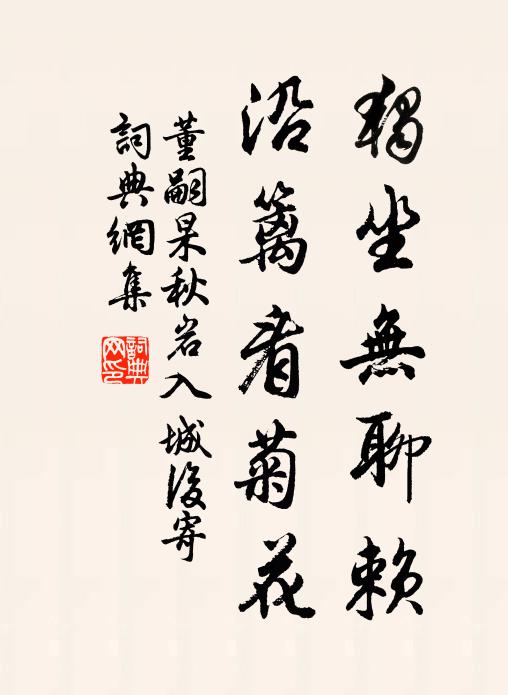 獨坐無聊賴
沿籬看菊花
董嗣杲秋岩入城後寄
詞典網集
詞典網印